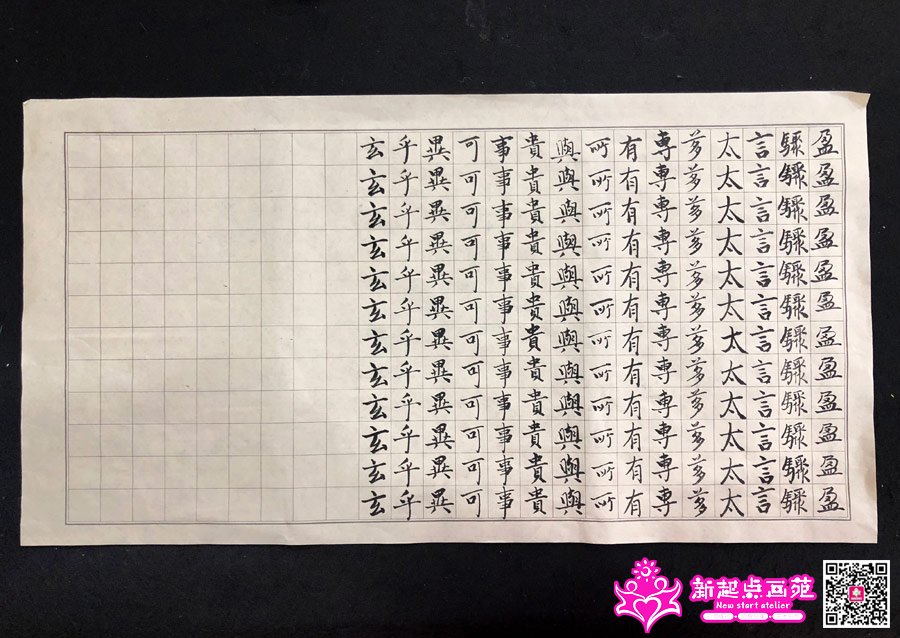 盈盈盈盈盈盈盈盈盈盈盈盈
驟驟驟驟驟驟驟驟驟驟驟驟
言言言言言言言言言言言言
太太太太太太太太太太太太
専専専専専専専専専専専専
有有有有有有有有有有有有
所所所所所所所所所所所所
與與與與與與與與與與與與
貴貴貴貴貴貴貴貴貴貴貴貴
事事事事事事事事事事事事
可可可可可可可可可可可可
異異異異異異異異異異異異
乎乎乎乎乎乎乎乎乎乎乎乎
玄玄玄玄玄玄玄玄玄玄玄玄
新起点画苑
New start atelier